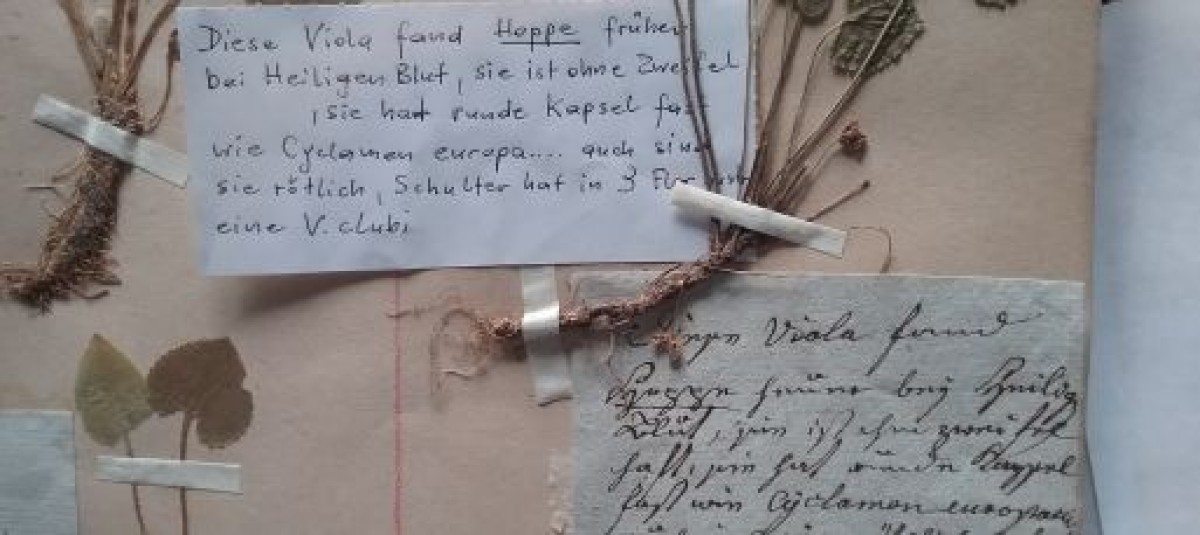 Diese Viola fand Hoppe früher
bei Heiligen Blut, sie ist ohne Zweifel
, sie hat runde Kapsel fast
wie Cyclamen europa.... auch sind
sie rötlich, Schulter hat in 3
eine V. clubi
Viola fand
Hoppe bey Heilig
Blut, ist
haft, sie hat runde Kappsel
fast wie Cyclamen europaeu